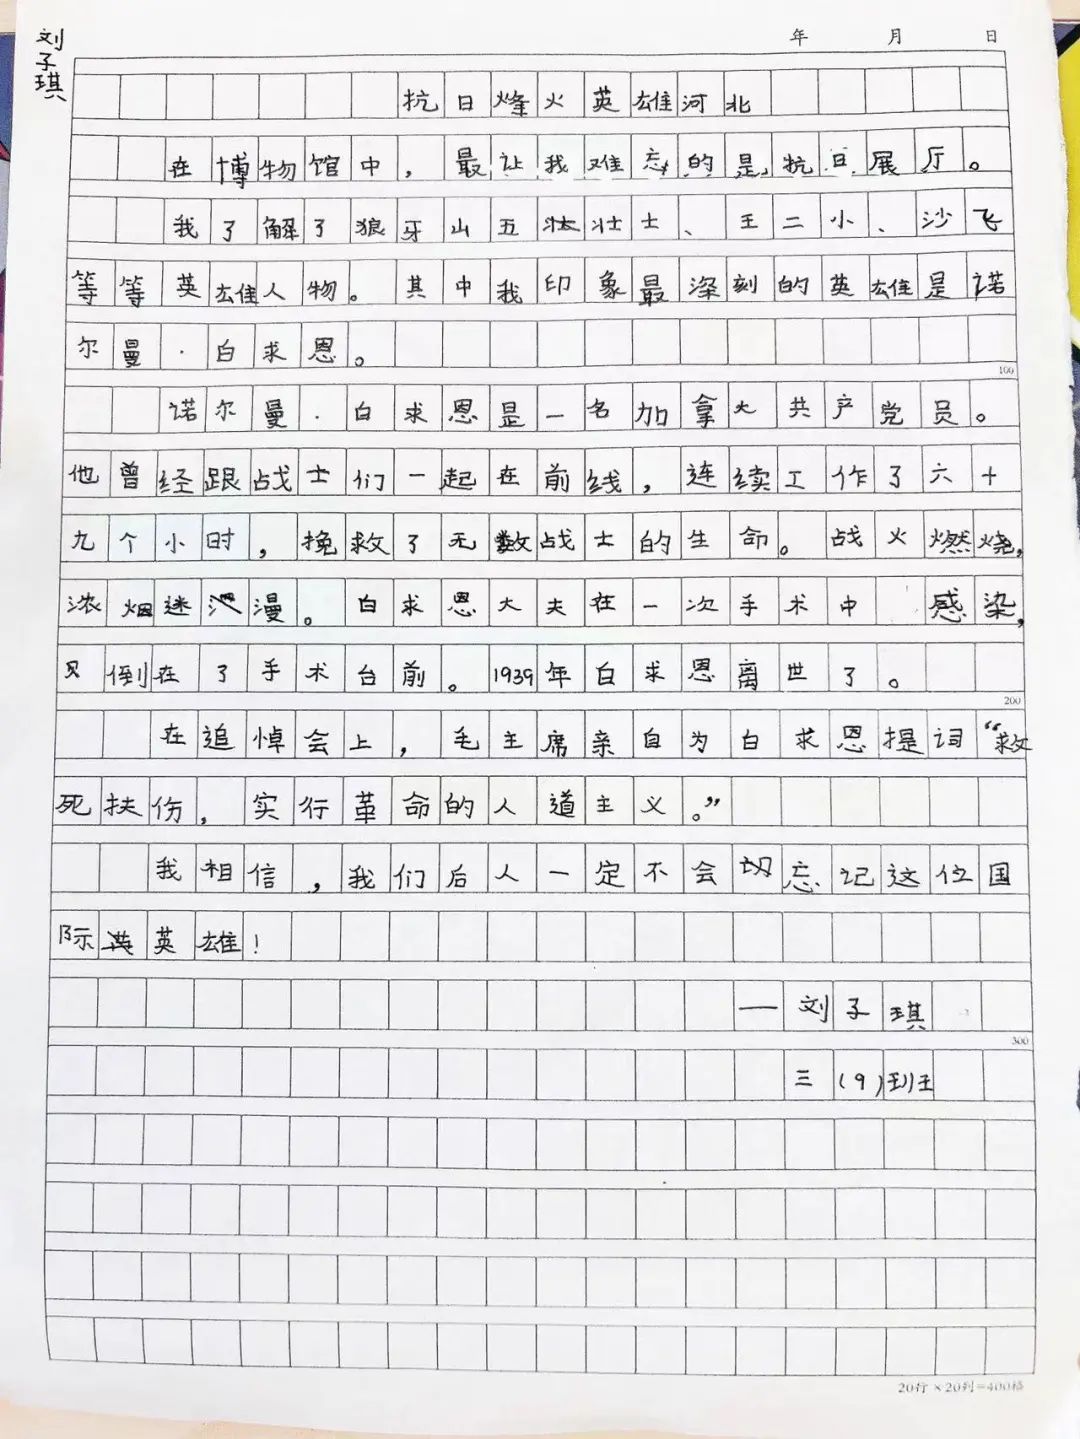 刘子琪
年 月 日
抗日烽火英雄河北
在博物馆中，最让我难忘的是抗日展厅。
我了解了狼牙山五壮士、王二小、沙飞
等等英雄人物。其中我印象最深刻的英雄是诺
尔曼·白求恩。
100
诺尔曼·白求恩是一名加拿大共产党员。
他曾经跟战士们一起在前线，连续工作了六十
九个小时，挽救了无数战士的生命。战火燃烧，
浓烟迷漫。白求恩大夫在一次手术中感染，
倒在了手术台前。1939年白求恩离世了。
200
在追悼会上，毛主席亲自为白求恩提词“救
死扶伤，实行革命的人道主义。”
我相信，我们后人一定不会忘记这位国
际英雄！
——刘子琪
300
三（9）班
20行×20列=400格